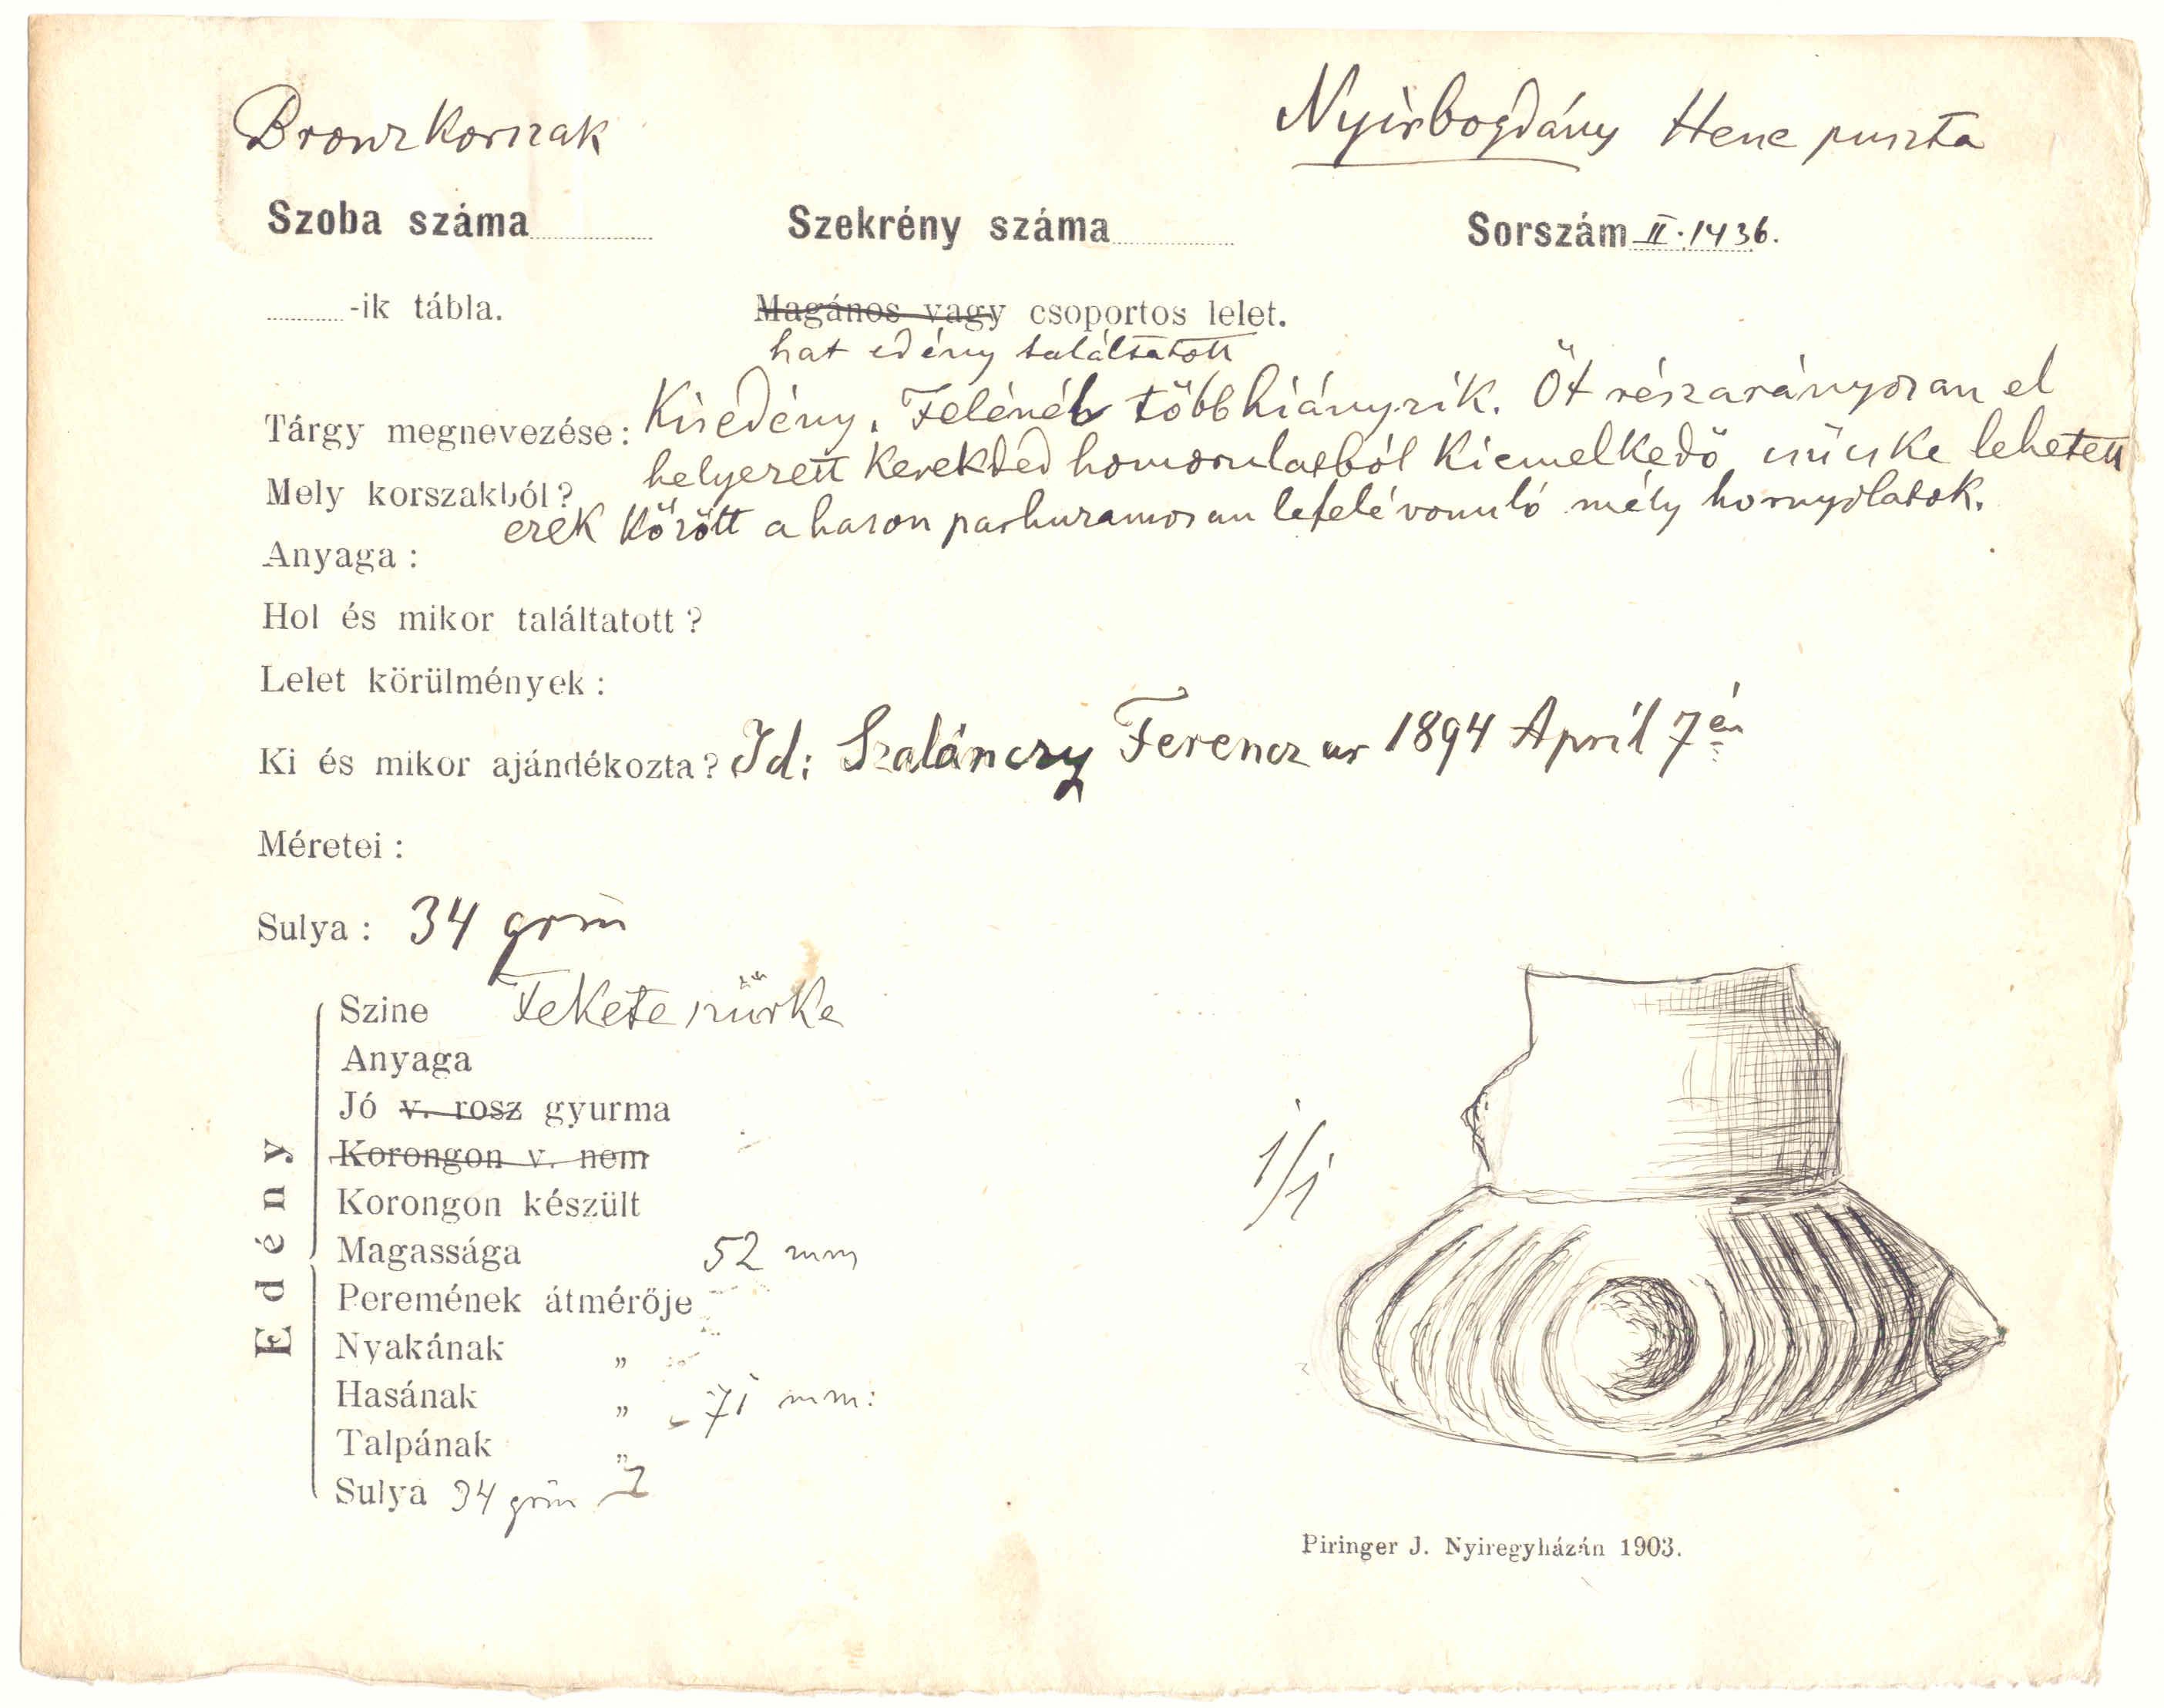 Bronzkorszak
Nyirbogdány Hene puszta
Szoba száma
Szekrény száma
Sorszám II. 1436.
-ik tábla.
Magános vagy csoportos lelet.
hat edény találtatott
Tárgy megnevezése: Kisedény. Felénél több hiányzik. Öt részarányosan el
Mely korszakból? helyezett kerekded homorulatból kiemelkedő csücske lehetett
ezek között a hason párhuzamosan lefelé vonuló mély hornyolatok.
Anyaga:
Hol és mikor találtatott?
Lelet körülmények:
Ki és mikor ajándékozta? Id: Szalánczy Ferencz ur 1894 Apríl 7én
Méretei:
Sulya: 34 grm
Edény
Szine Fekete szürke
Anyaga
Jó v. rosz gyurma
Korongon v. nem
Korongon készült
Magassága 52 mm
Peremének átmérője
Nyakának "
Hasának " 71 mm:
Talpának "
Sulya 34 grm
1/1
Piringer J. Nyiregyházán 1903.